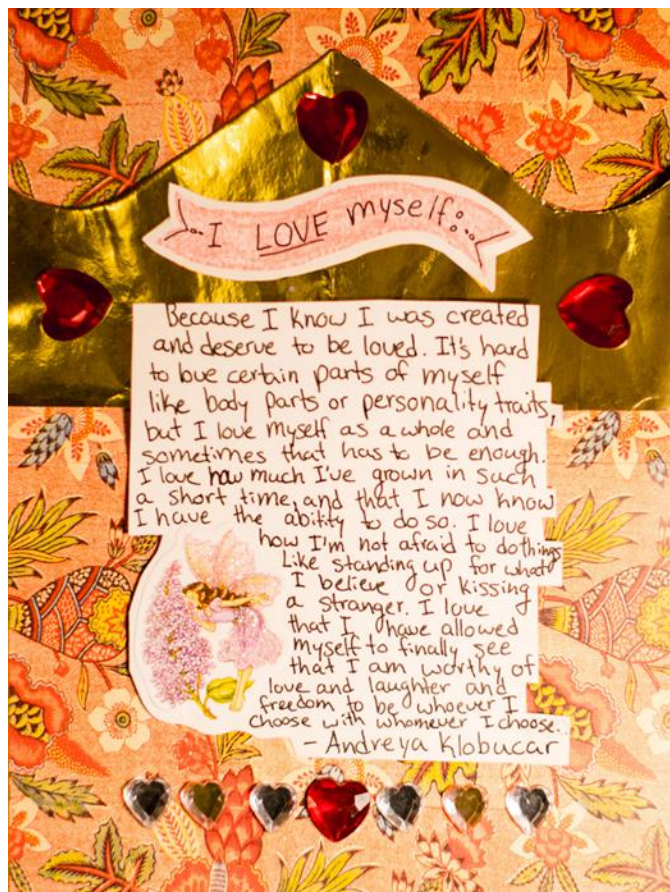 ...I LOVE myself...
Because I know I was created
and deserve to be loved. It's hard
to love certain parts of myself
like body parts or personality traits,
but I love myself as a whole and
sometimes that has to be enough.
I love how much I've grown in such
a short time, and that I now know
I have the ability to do so. I love
how I'm not afraid to do things
Like standing up for what
I believe or kissing
a stranger. I love
that I have allowed
myself to finally see
that I am worthy of
love and laughter and
freedom to be whoever I
choose with whomever I choose..
- Andreya Klobucar